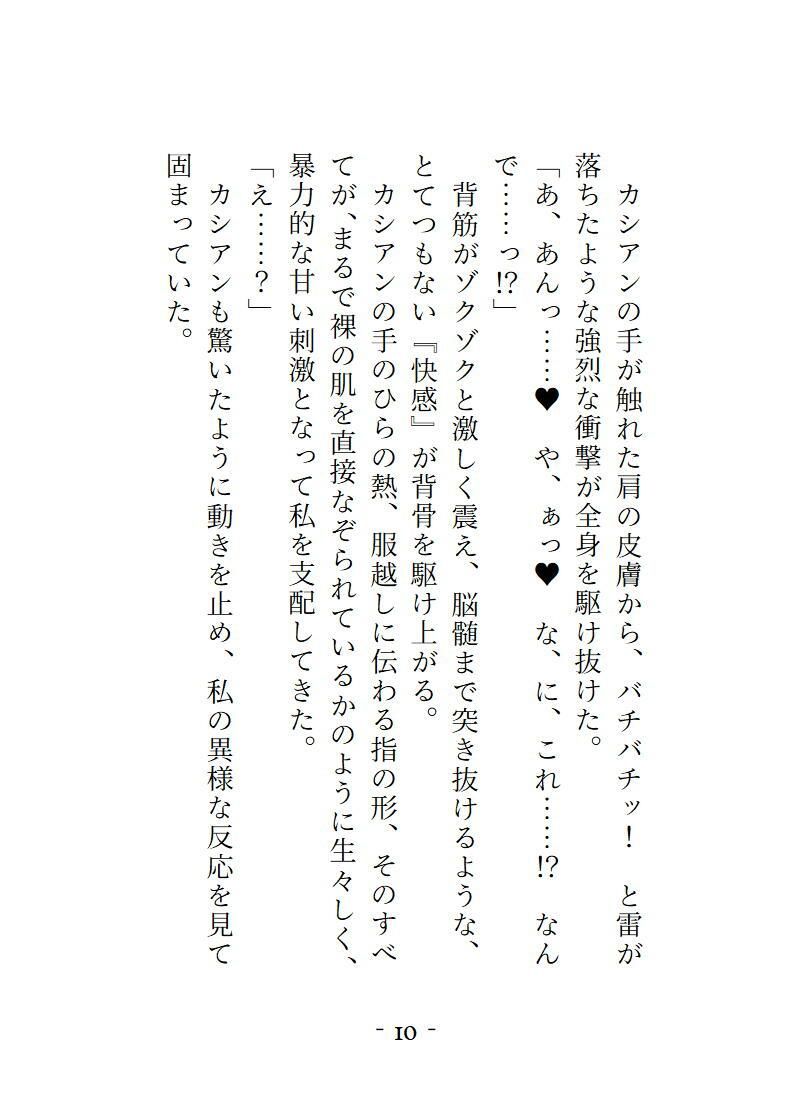 カシアンの手が触れた肩の皮膚から、バチバチッ！　と雷が
落ちたような強烈な衝撃が全身を駆け抜けた。
「あ、あんっ……♥　や、ぁっ♥　な、に、これ……⁉　なん
で……っ⁉」
背筋がゾクゾクと激しく震え、脳髄まで突き抜けるような、
とてつもない『快感』が背骨を駆け上がる。
カシアンの手のひらの熱、服越しに伝わる指の形、そのすべ
てが、まるで裸の肌を直接なぞられているかのように生々しく、
暴力的な甘い刺激となって私を支配してきた。
「え……？」
カシアンも驚いたように動きを止め、私の異様な反応を見て
固まっていた。
- 10 -